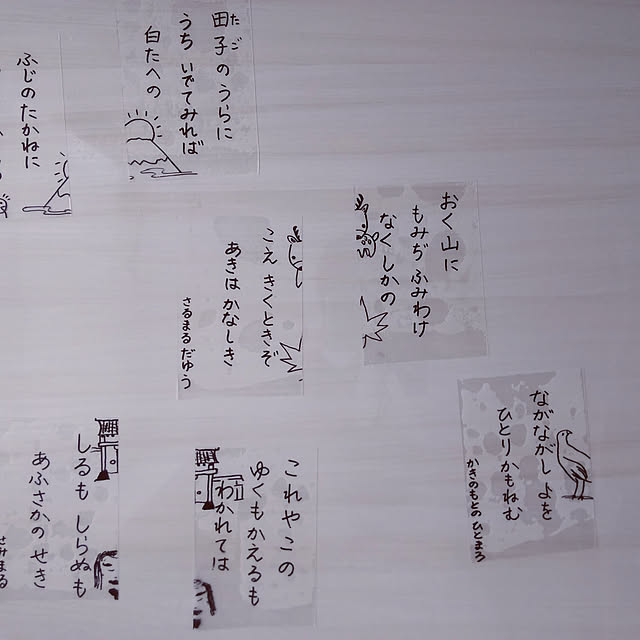 田子のうらに
たご
うちいでてみれば
白たへの
ふじのたかねに
おく山に
もみぢふみわけ
なくしかの
こえきくときぞ
あきはかなしき
さるまるだゆう
ながながしよを
ひとりかもねむ
かきのもとのひとまろ
これやこの
ゆくもかえるも
わかれては
しるもしらぬも
あふさかのせき
せみまる